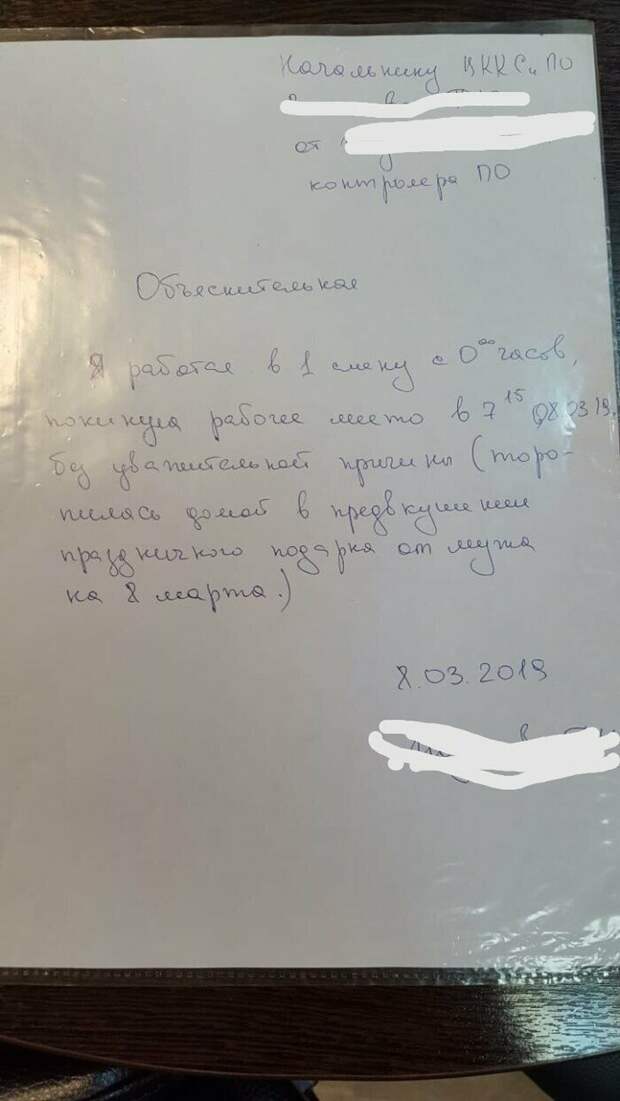 Начальнику ЦККСи ПО
от
контролера ПО
Объяснительная
Я работая в 1 смену с 0⁰⁰ часов,
покинула рабочее место в 7¹⁵ 08.03.19.
без уважительной причины (торо-
пилась домой в предвкушении
праздничного подарка от мужа
на 8 марта.)
8.03.2019